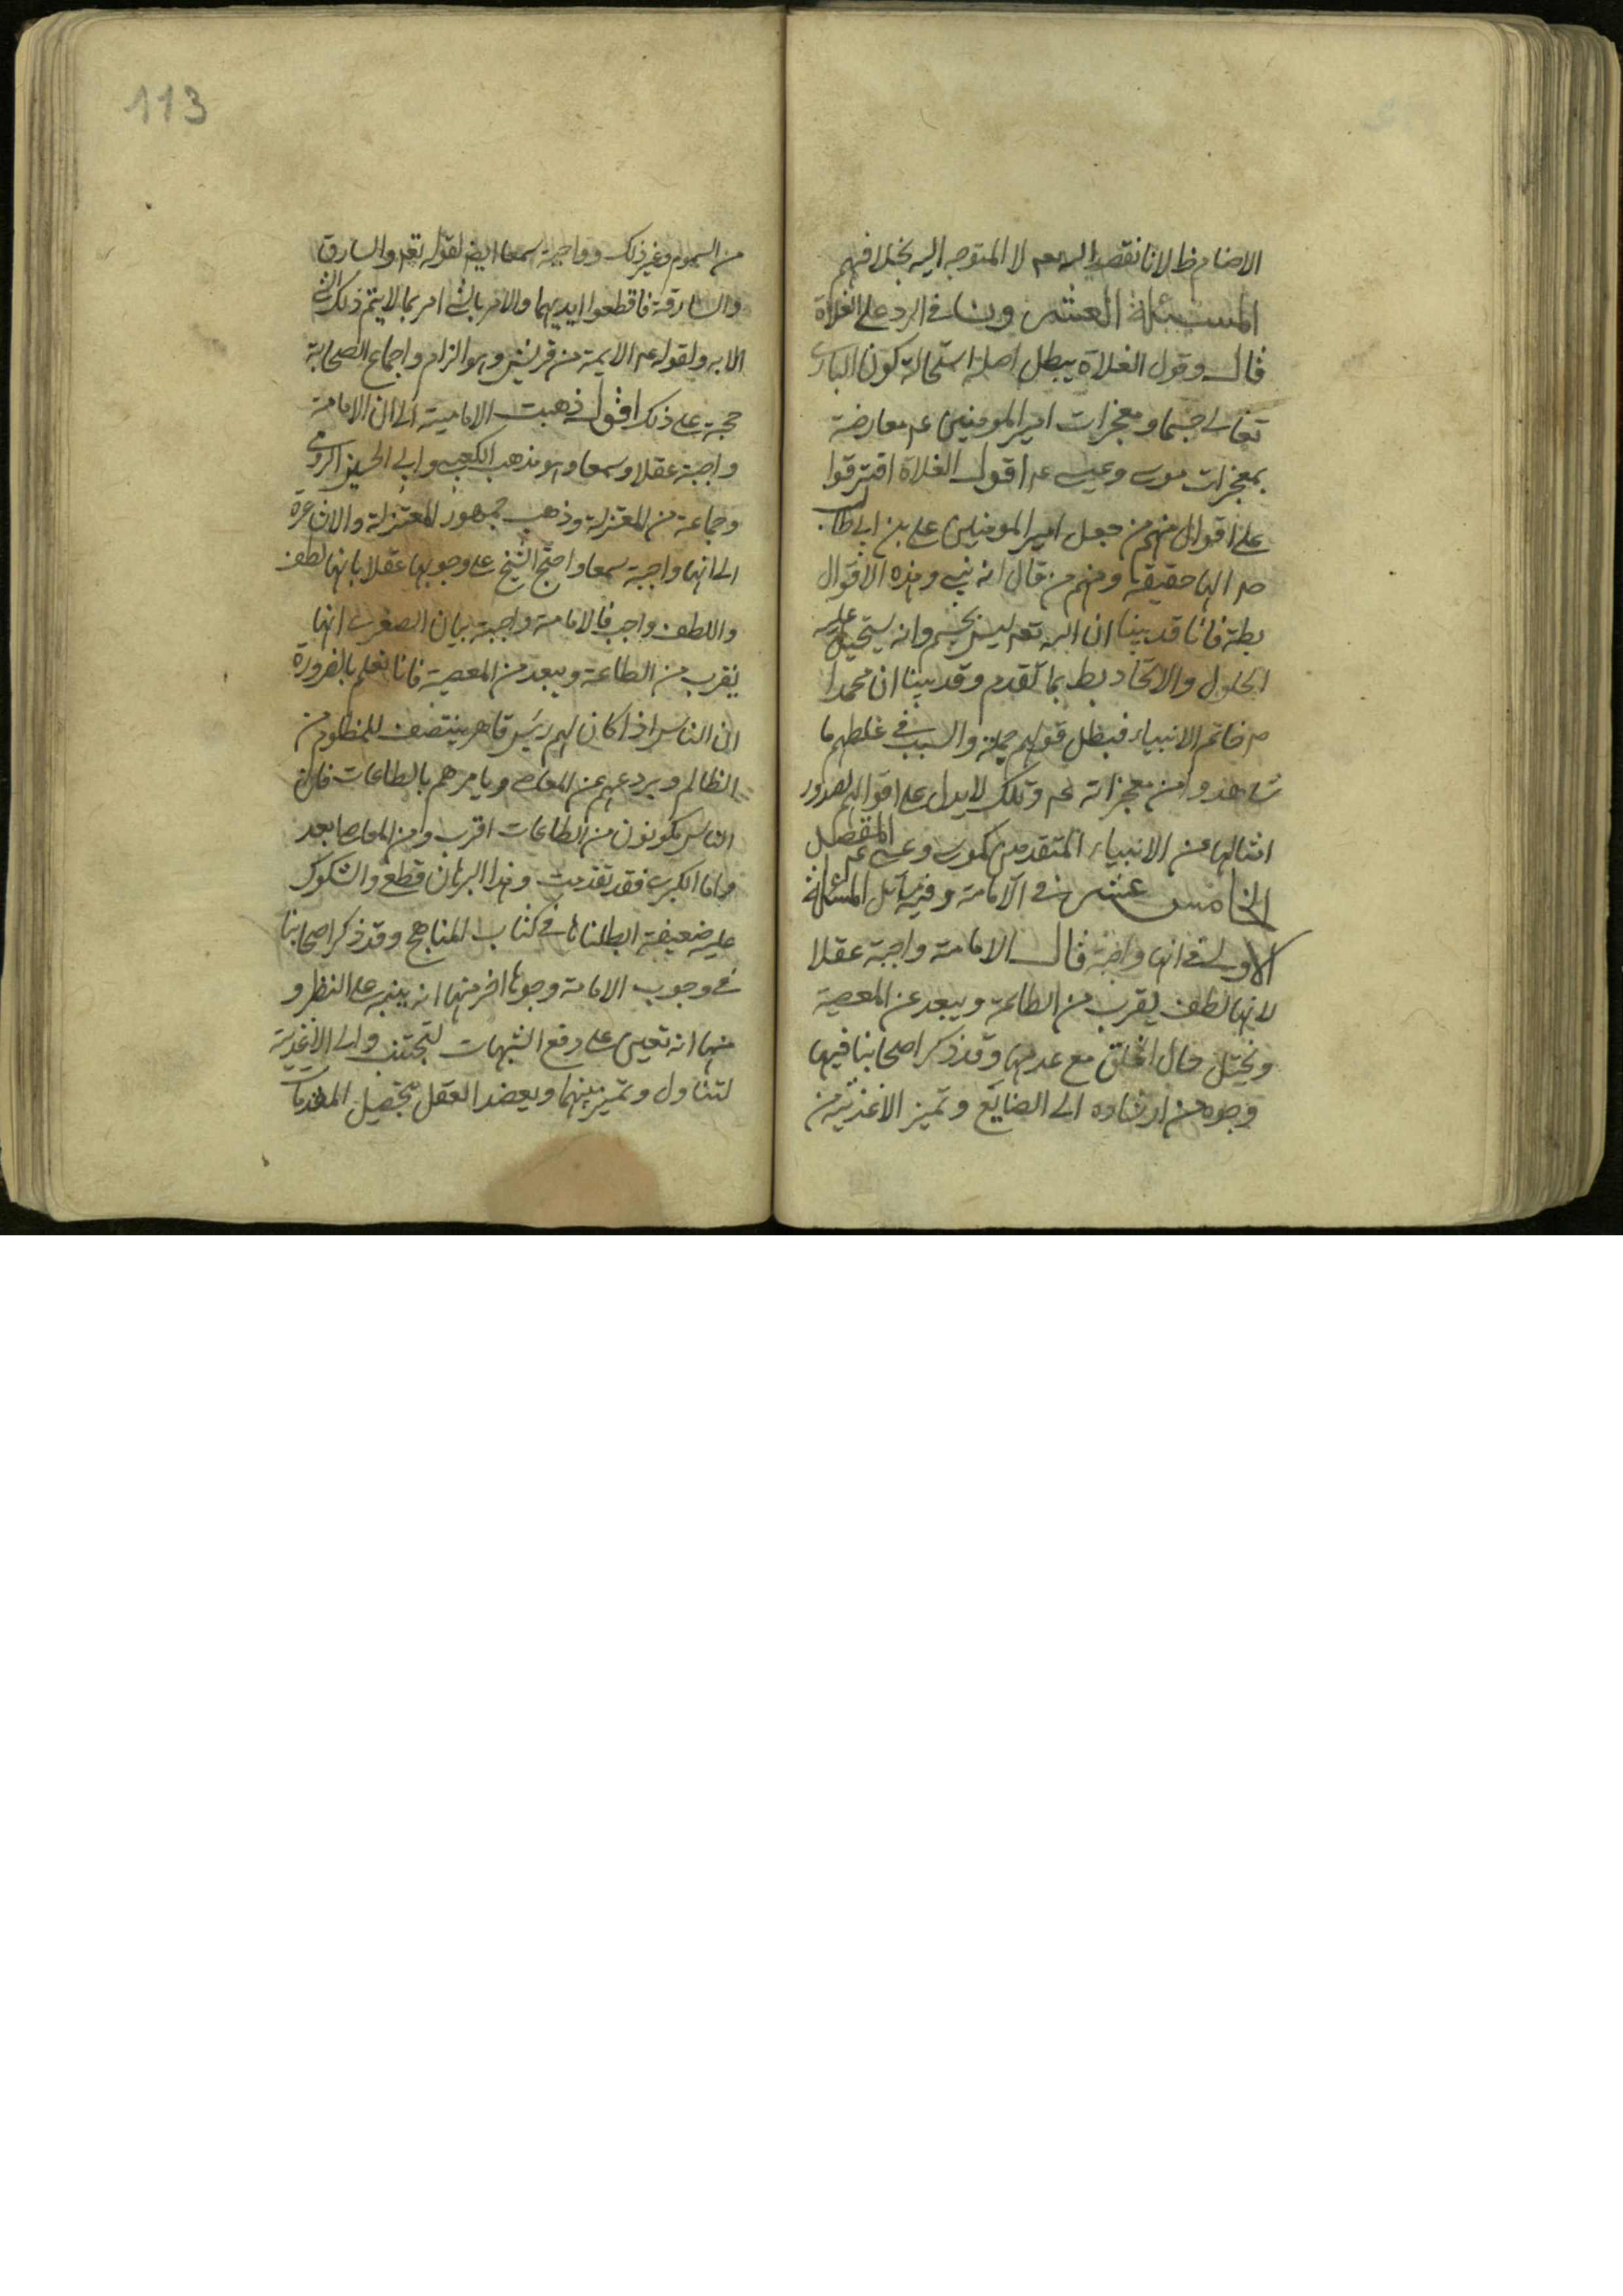 الاصنام ظ لانا نقصد الله تعه لا المتوجه اليه بخلافهم
المسئلة العشرون في الرد على الغلاة
قال وقول الغلاة يبطل اصله استحالة كون البارى
تعالى جسما ومعجزات امير المومنين عم معارضة
بمعجزات موسى وعيسى عم اقول الغلاة افترقوا
على اقوال منهم من جعل امير المومنين على بن ابى طالب
ص الها حقيقة ومنهم من قال انه نبى وهذه الاقوال
بطة فانا قد بينا ان الله تعه ليس بجسم وانه يستحيل عليه
الحلول والاتحاد بط بما تقدم وقد بينا ان محمدا
ص خاتم الانبياء فبطل قولهم جملة والسبب في غلطهم ما
شاهدوا من معجزاته عم وتلك لا يدل على اقوالهم لصدور
امثالها من الانبياء المتقدمين كموسى وعيسى عم المقصد
الخامس عشر في الامامة وفيه مسائل المسئلة
الاولى في انها واجبة قال الامامة واجبة عقلا
لانها لطف يقرب من الطاعة ويبعد عن المعصية
ويختل حال الخلق مع عدمها وقد ذكر اصحابنا فيها
وجوه من ارشاده الى الصنايع وتميز الاغذية من
113
من السموم وغير ذلك وواجبة سمعا ايضا لقوله تعه والسارق
والسارقة فاقطعوا ايديهما والامر بالشى امر بما لا يتم ذلك الشى
الا به ولقوله عم الايمة من قريش وهو الزام واجماع الصحابة
حجة على ذلك اقول ذهبت الامامية الى ان الامامة
واجبة عقلا وسمعا وهو مذهب الكعبى وابى الحسين
وجماعة من المعتزلة وذهب جمهور المعتزلة والاشاعرة
الى انها واجبة سمعا واحتج الشيخ على وجوبها عقلا بانها لطف
واللطف واجب فالامامة واجبة بيان الصغرى انها
يقرب من الطاعة ويبعد من المعصية فانا نعلم بالضرورة
ان الناس اذا كان لهم رئيس قاهر ينتصف للمظلوم من
الظالم ويردعهم عن المعاصى ويامرهم بالطاعات فان
الناس يكونون من الطاعات اقرب ومن المعاصى ابعد
واما الكبرى فقد تقدمت وهذا البرهان قطعى والشكوك
عليه ضعيفة ابطلناها في كتاب المناهج وقد ذكر اصحابنا
في وجوب الامامة وجوها اخر منها انه ينبه على النظر و
منها انه تعين على دفع الشبهات لتجتنب والى الاغذية
لتناول وتميز بينهما ويعضد العقل بتحصيل المقدمات